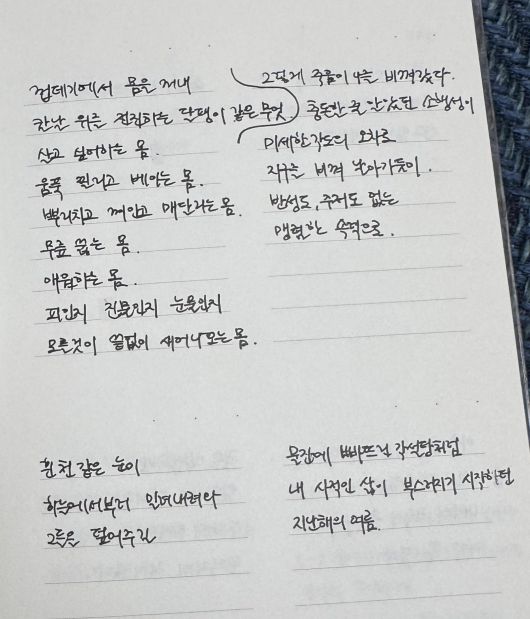 껍데기에서 몸을 꺼내
칼날 위를 전진하는 달팽이 같은 무엇.
살고 싶어하는 몸
움푹 찔리고 베이는 몸.
뿌리치고 껴안고 매달리는 몸.
무릎 꿇는 몸.
애원하는 몸.
피인지 진물인지 눈물인지
모를것이 끝없이 새어나오는 몸.
그렇게 죽음이 나를 비껴갔다.
충돌할 줄 알았던 소행성이
미세한 각도의 오차로
지구를 비껴 날아가듯이.
반성도, 주저도 없는
맹렬한 속력으로.
흰 천 같은 눈이
하늘에서부터 밀려내려와
그들을 덮어주길
물잔에 빠뜨린 각설탕처럼
내 사적인 삶이 부스러지기 시작하던
지난해의 여름.